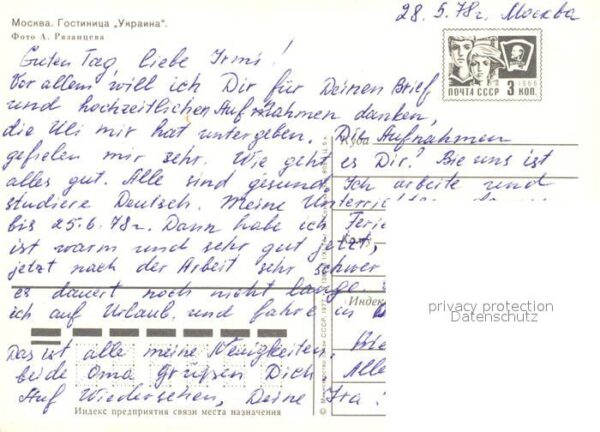 Москва. Гостиница „Украина".
Фото А. Рязанцева
28. 5. 78г. Москва
ПОЧТА СССР 3 КОП.
Guten Tag, liebe Irmi!
Vor allem will ich Dir für Deinen Brief
und hochzeitlichen Aufnahmen danken,
die Uli mir hat untergeben. Die Aufnahmen
Куда
gefielen mir sehr. Wie geht es Dir? Bie uns ist
alles gut. Alle sind gesund. Ich arbeite und
studiere Deutsch. Meine
bis 25.6.78г. Dann habe ich
ist warm und sehr gut jetzt,
jetzt nach der Arbeit sehr schwer
es dauert noch nicht lange.
Индек
ich auf Urlaub und fahre in
privacy protection
Datenschutz
Das ist alle meine Neuigkeiten.
beide Oma grüßen Dich. Alle
Auf Wiedersehen, Deine Ira!
Индекс предприятия связи места назначения